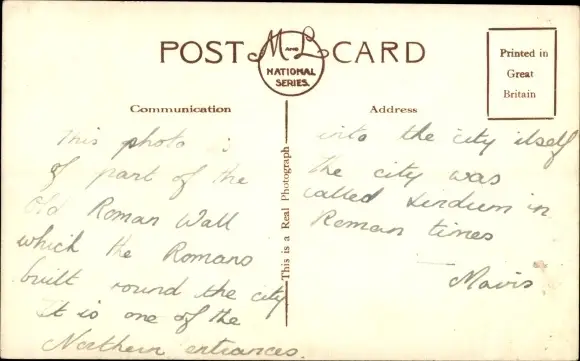 POST CARD
M AND L
NATIONAL
SERIES.
Printed in
Great
Britain
Communication
Address
This is a Real Photograph
This photo is
of part of the
Old Roman Wall
which the Romans
built round the city
It is one of the
Northern entrances.
into the city itself
the city was
called Lindum in
Roman times
Mavis